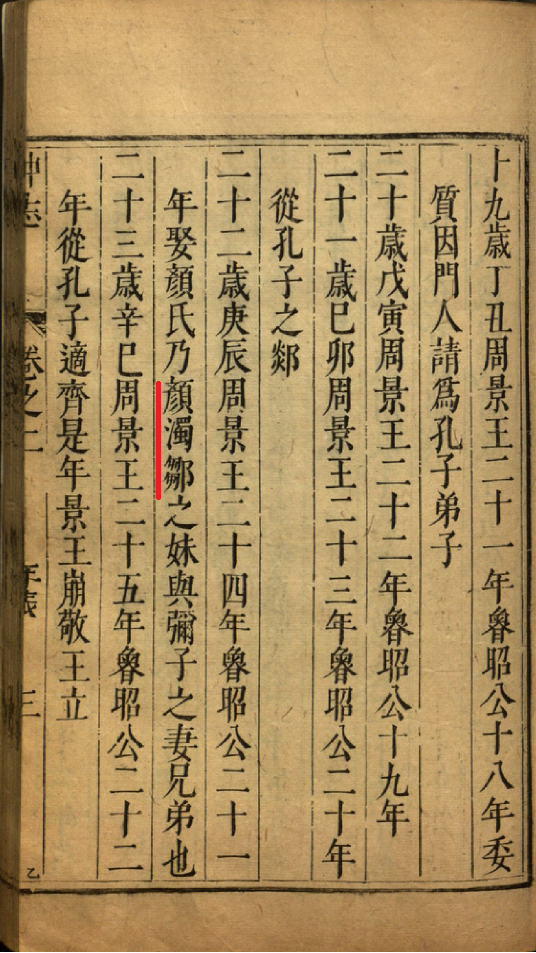 十九歲丁丑周景王二十一年魯昭公十八年委
質因門人請爲孔子弟子
二十歲戊寅周景王二十二年魯昭公十九年
二十一歲巳卯周景王二十三年魯昭公二十年
從孔子之郯
二十二歲庚辰周景王二十四年魯昭公二十一
年娶顔氏乃顔濁鄒之妹與彌子之妻兄弟也
二十三歲辛巳周景王二十五年魯昭公二十二
年從孔子適齊是年景王崩敬王立
卷之二 年表 三
乙